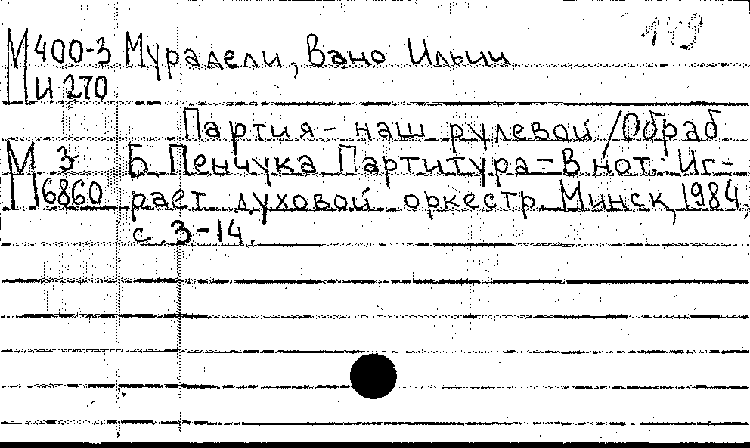 149
М 400-3 Мурадели, Вано Ильич
И 270
Партия - наш рулевой /Обраб
М 3 Б. Пенчука Партитура - В нот.: Иг-
П 6860 рает духовой оркестр. Минск, 1984,
с. 3-14.